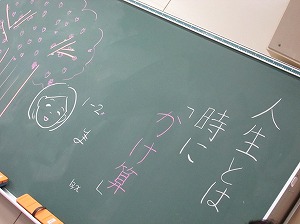 人生とは
時に
かけ算
1-2